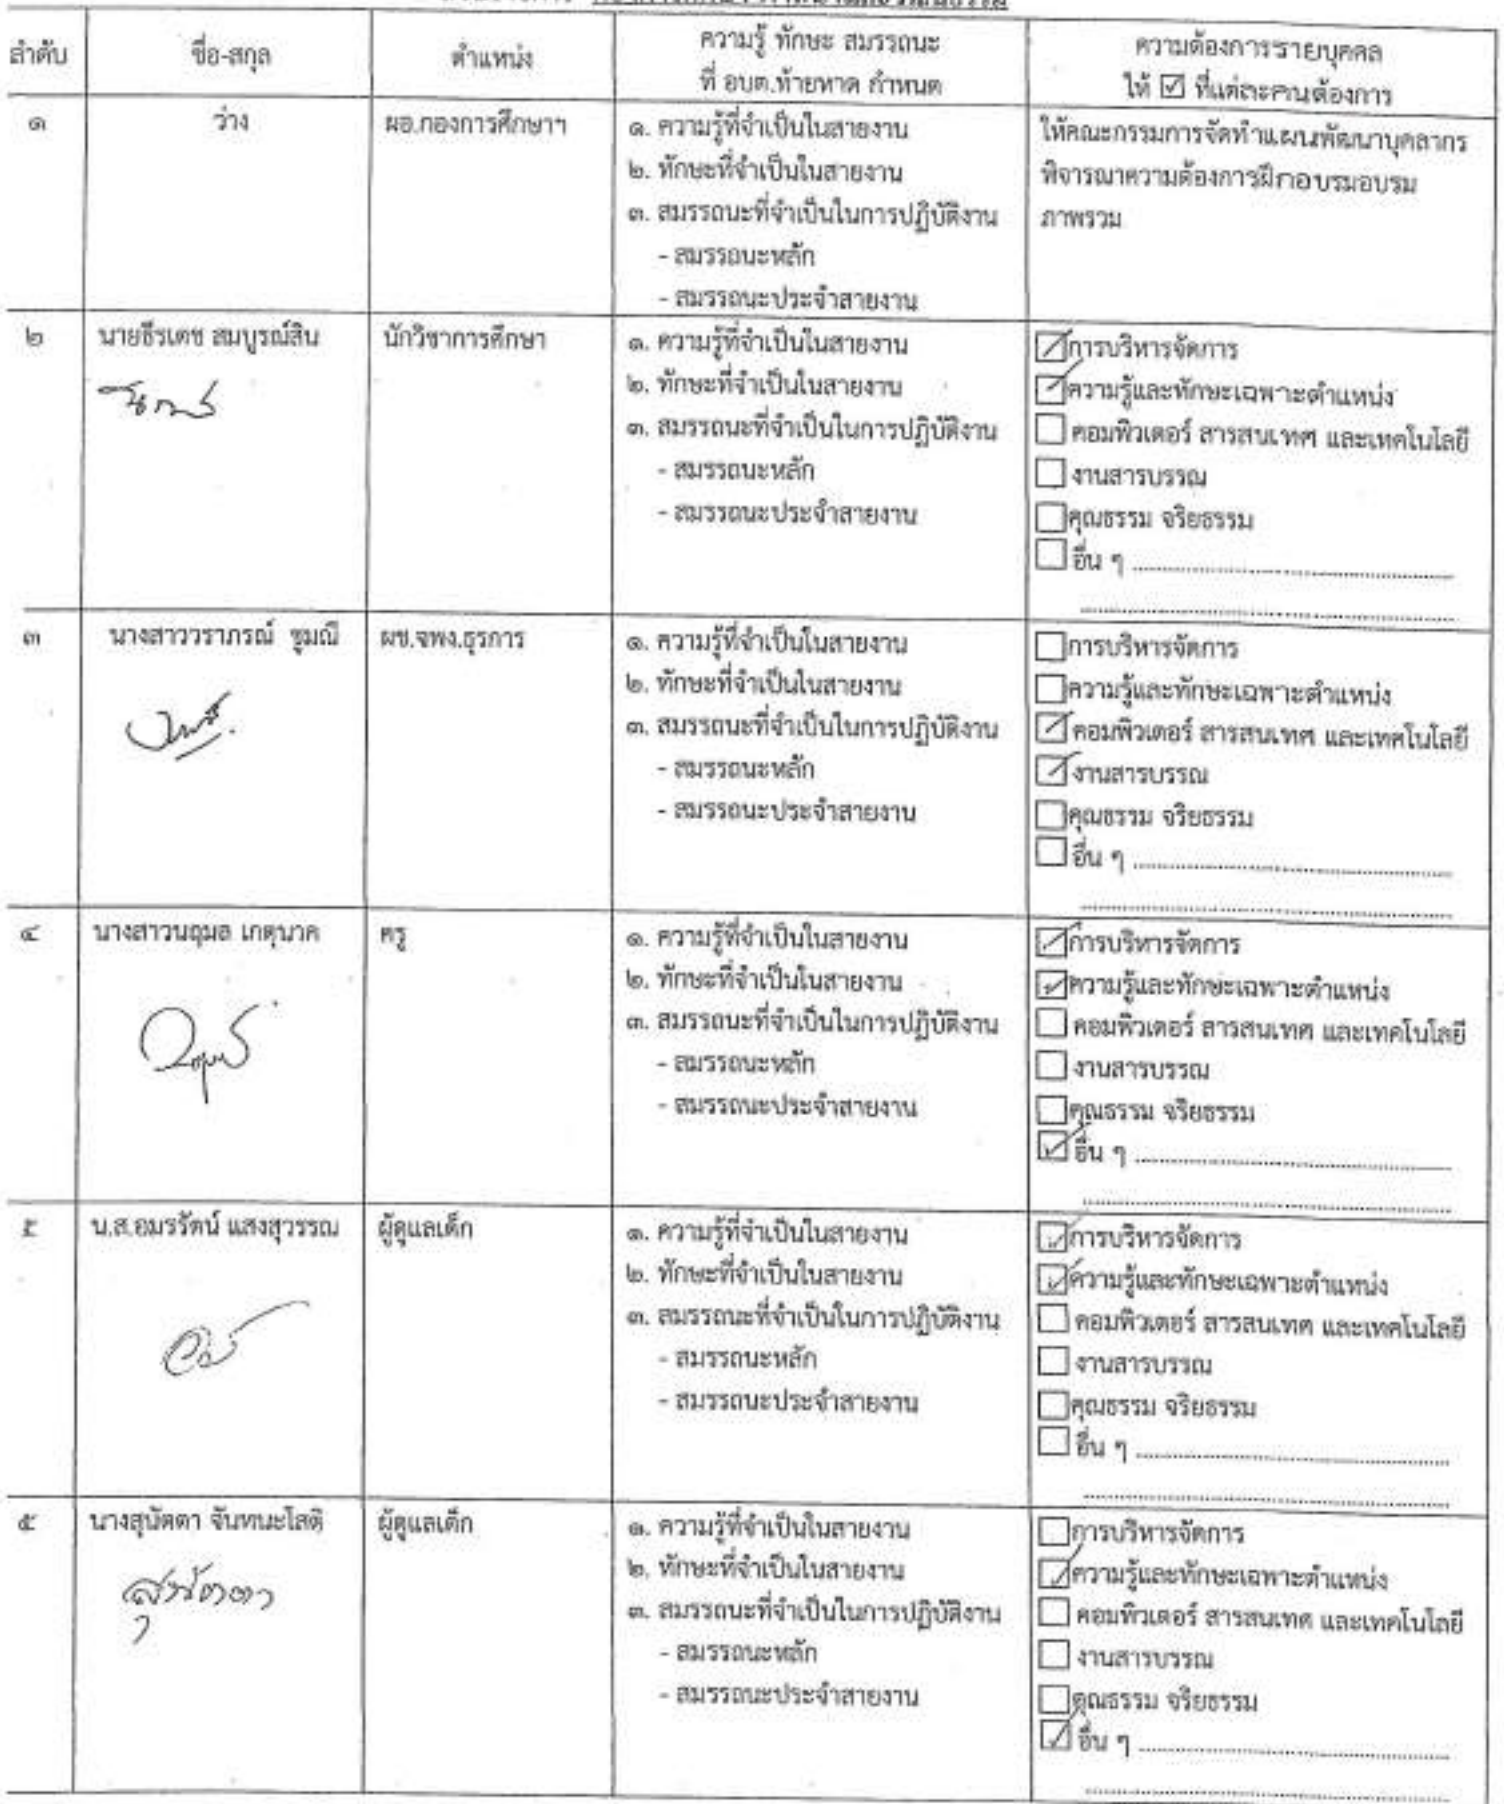 ลำดับ
ชื่อ-สกุล
ตำแหน่ง
ความรู้ ทักษะ สมรรถนะ
ที่ อบต.ท้ายหาด กำหนด
ความต้องการรายบุคคล
ให้ ☑ ที่แต่ละคนต้องการ
๑
ว่าง
ผอ.กองการศึกษาฯ
๑. ความรู้ที่จำเป็นในสายงาน
๒. ทักษะที่จำเป็นในสายงาน
๓. สมรรถนะที่จำเป็นในการปฏิบัติงาน
- สมรรถนะหลัก
- สมรรถนะประจำสายงาน
ให้คณะกรรมการจัดทำแผนพัฒนาบุคลากร
พิจารณาความต้องการฝึกอบรมอบรม
ภาพรวม
๒
นายธีรเดช สมบูรณ์สิน
นักวิชาการศึกษา
๑. ความรู้ที่จำเป็นในสายงาน
๒. ทักษะที่จำเป็นในสายงาน
๓. สมรรถนะที่จำเป็นในการปฏิบัติงาน
- สมรรถนะหลัก
- สมรรถนะประจำสายงาน
☑ การบริหารจัดการ
☑ ความรู้และทักษะเฉพาะตำแหน่ง
☐ คอมพิวเตอร์ สารสนเทศ และเทคโนโลยี
☐ งานสารบรรณ
☐ คุณธรรม จริยธรรม
☐ อื่น ๆ
๓
นางสาววราภรณ์ ชูมณี
ผช.จพง.ธุรการ
๑. ความรู้ที่จำเป็นในสายงาน
๒. ทักษะที่จำเป็นในสายงาน
๓. สมรรถนะที่จำเป็นในการปฏิบัติงาน
- สมรรถนะหลัก
- สมรรถนะประจำสายงาน
☐ การบริหารจัดการ
☐ ความรู้และทักษะเฉพาะตำแหน่ง
☑ คอมพิวเตอร์ สารสนเทศ และเทคโนโลยี
☑ งานสารบรรณ
☐ คุณธรรม จริยธรรม
☐ อื่น ๆ
๔
นางสาวนฤมล เกตุนาค
ครู
๑. ความรู้ที่จำเป็นในสายงาน
๒. ทักษะที่จำเป็นในสายงาน
๓. สมรรถนะที่จำเป็นในการปฏิบัติงาน
- สมรรถนะหลัก
- สมรรถนะประจำสายงาน
☑ การบริหารจัดการ
☑ ความรู้และทักษะเฉพาะตำแหน่ง
☐ คอมพิวเตอร์ สารสนเทศ และเทคโนโลยี
☐ งานสารบรรณ
☐ คุณธรรม จริยธรรม
☑ อื่น ๆ
น.ส.อมรรัตน์ แสงสุวรรณ
ผู้ดูแลเด็ก
๑. ความรู้ที่จำเป็นในสายงาน
๒. ทักษะที่จำเป็นในสายงาน
๓. สมรรถนะที่จำเป็นในการปฏิบัติงาน
- สมรรถนะหลัก
- สมรรถนะประจำสายงาน
☑ การบริหารจัดการ
☑ ความรู้และทักษะเฉพาะตำแหน่ง
☐ คอมพิวเตอร์ สารสนเทศ และเทคโนโลยี
☐ งานสารบรรณ
☐ คุณธรรม จริยธรรม
☐ อื่น ๆ
๕
นางสุนัตตา จันทนะโสติ
สุนัตตา
ผู้ดูแลเด็ก
๑. ความรู้ที่จำเป็นในสายงาน
๒. ทักษะที่จำเป็นในสายงาน
๓. สมรรถนะที่จำเป็นในการปฏิบัติงาน
- สมรรถนะหลัก
- สมรรถนะประจำสายงาน
☐ การบริหารจัดการ
☑ ความรู้และทักษะเฉพาะตำแหน่ง
☐ คอมพิวเตอร์ สารสนเทศ และเทคโนโลยี
☐ งานสารบรรณ
☐ คุณธรรม จริยธรรม
☑ อื่น ๆ